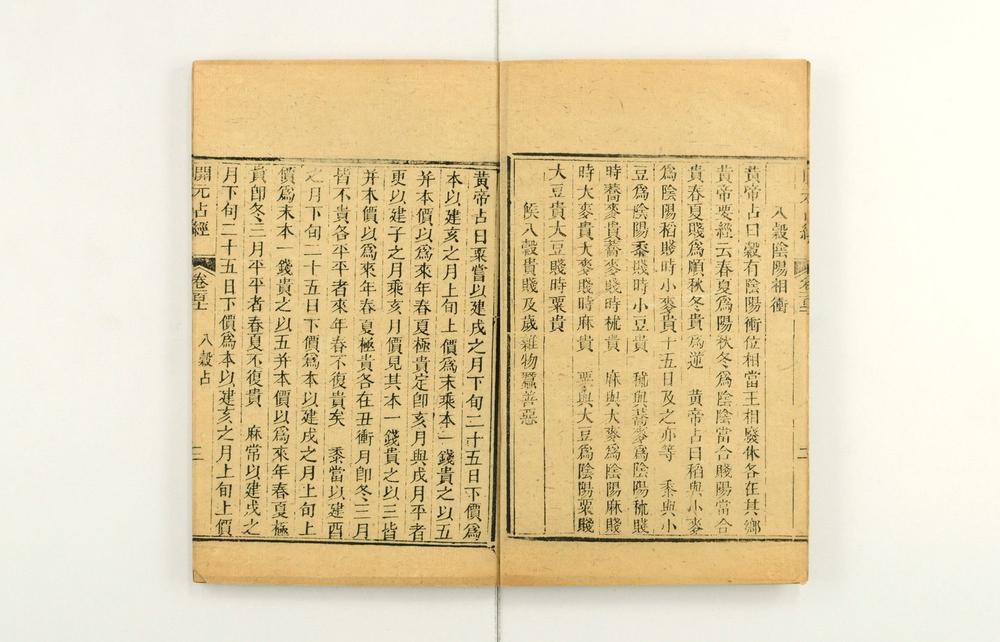 八穀陰陽相衝
黃帝占曰穀有陰陽衝位相當王相廢休各在其鄉
黃帝要經云春夏爲陽秋冬爲陰陰當合賤陽當合
貴春夏賤爲順秋冬貴爲逆 黃帝占曰稻與小麥
爲陰陽稻賤時小麥貴十五日及之亦等 黍與小
豆爲陰陽黍賤時小豆貴 秫與蕎麥爲陰陽秫賤
時蕎麥貴蕎麥賤時秫貴 麻與大麥爲陰陽麻賤
時大麥貴大麥賤時麻貴 粟與大豆爲陰陽粟賤
大豆貴大豆賤時粟貴
候八穀貴賤及歲雜物蠶善惡
二
黃帝占曰粟嘗以建戌之月下旬二十五日下價爲
本以建亥之月上旬上價爲末乘本一錢貴之以五
并本價以爲來年春夏極貴定卽亥月與戌月平者
更以建子之月乘亥月價見其本一錢貴之以三皆
并本價以爲來年春夏極貴各在丑衝月卽冬三月
皆不貴各平平者來年春不復貴矣 黍當以建酉
之月下旬二十五日下價爲本以建戌之月上旬上
價爲末本一錢貴之以五并本價以爲來年春夏極
貴卽冬三月平平者春夏不復貴 麻常以建戌之
月下旬二十五日下價爲本以建亥之月上旬上價
開元占經
八穀占